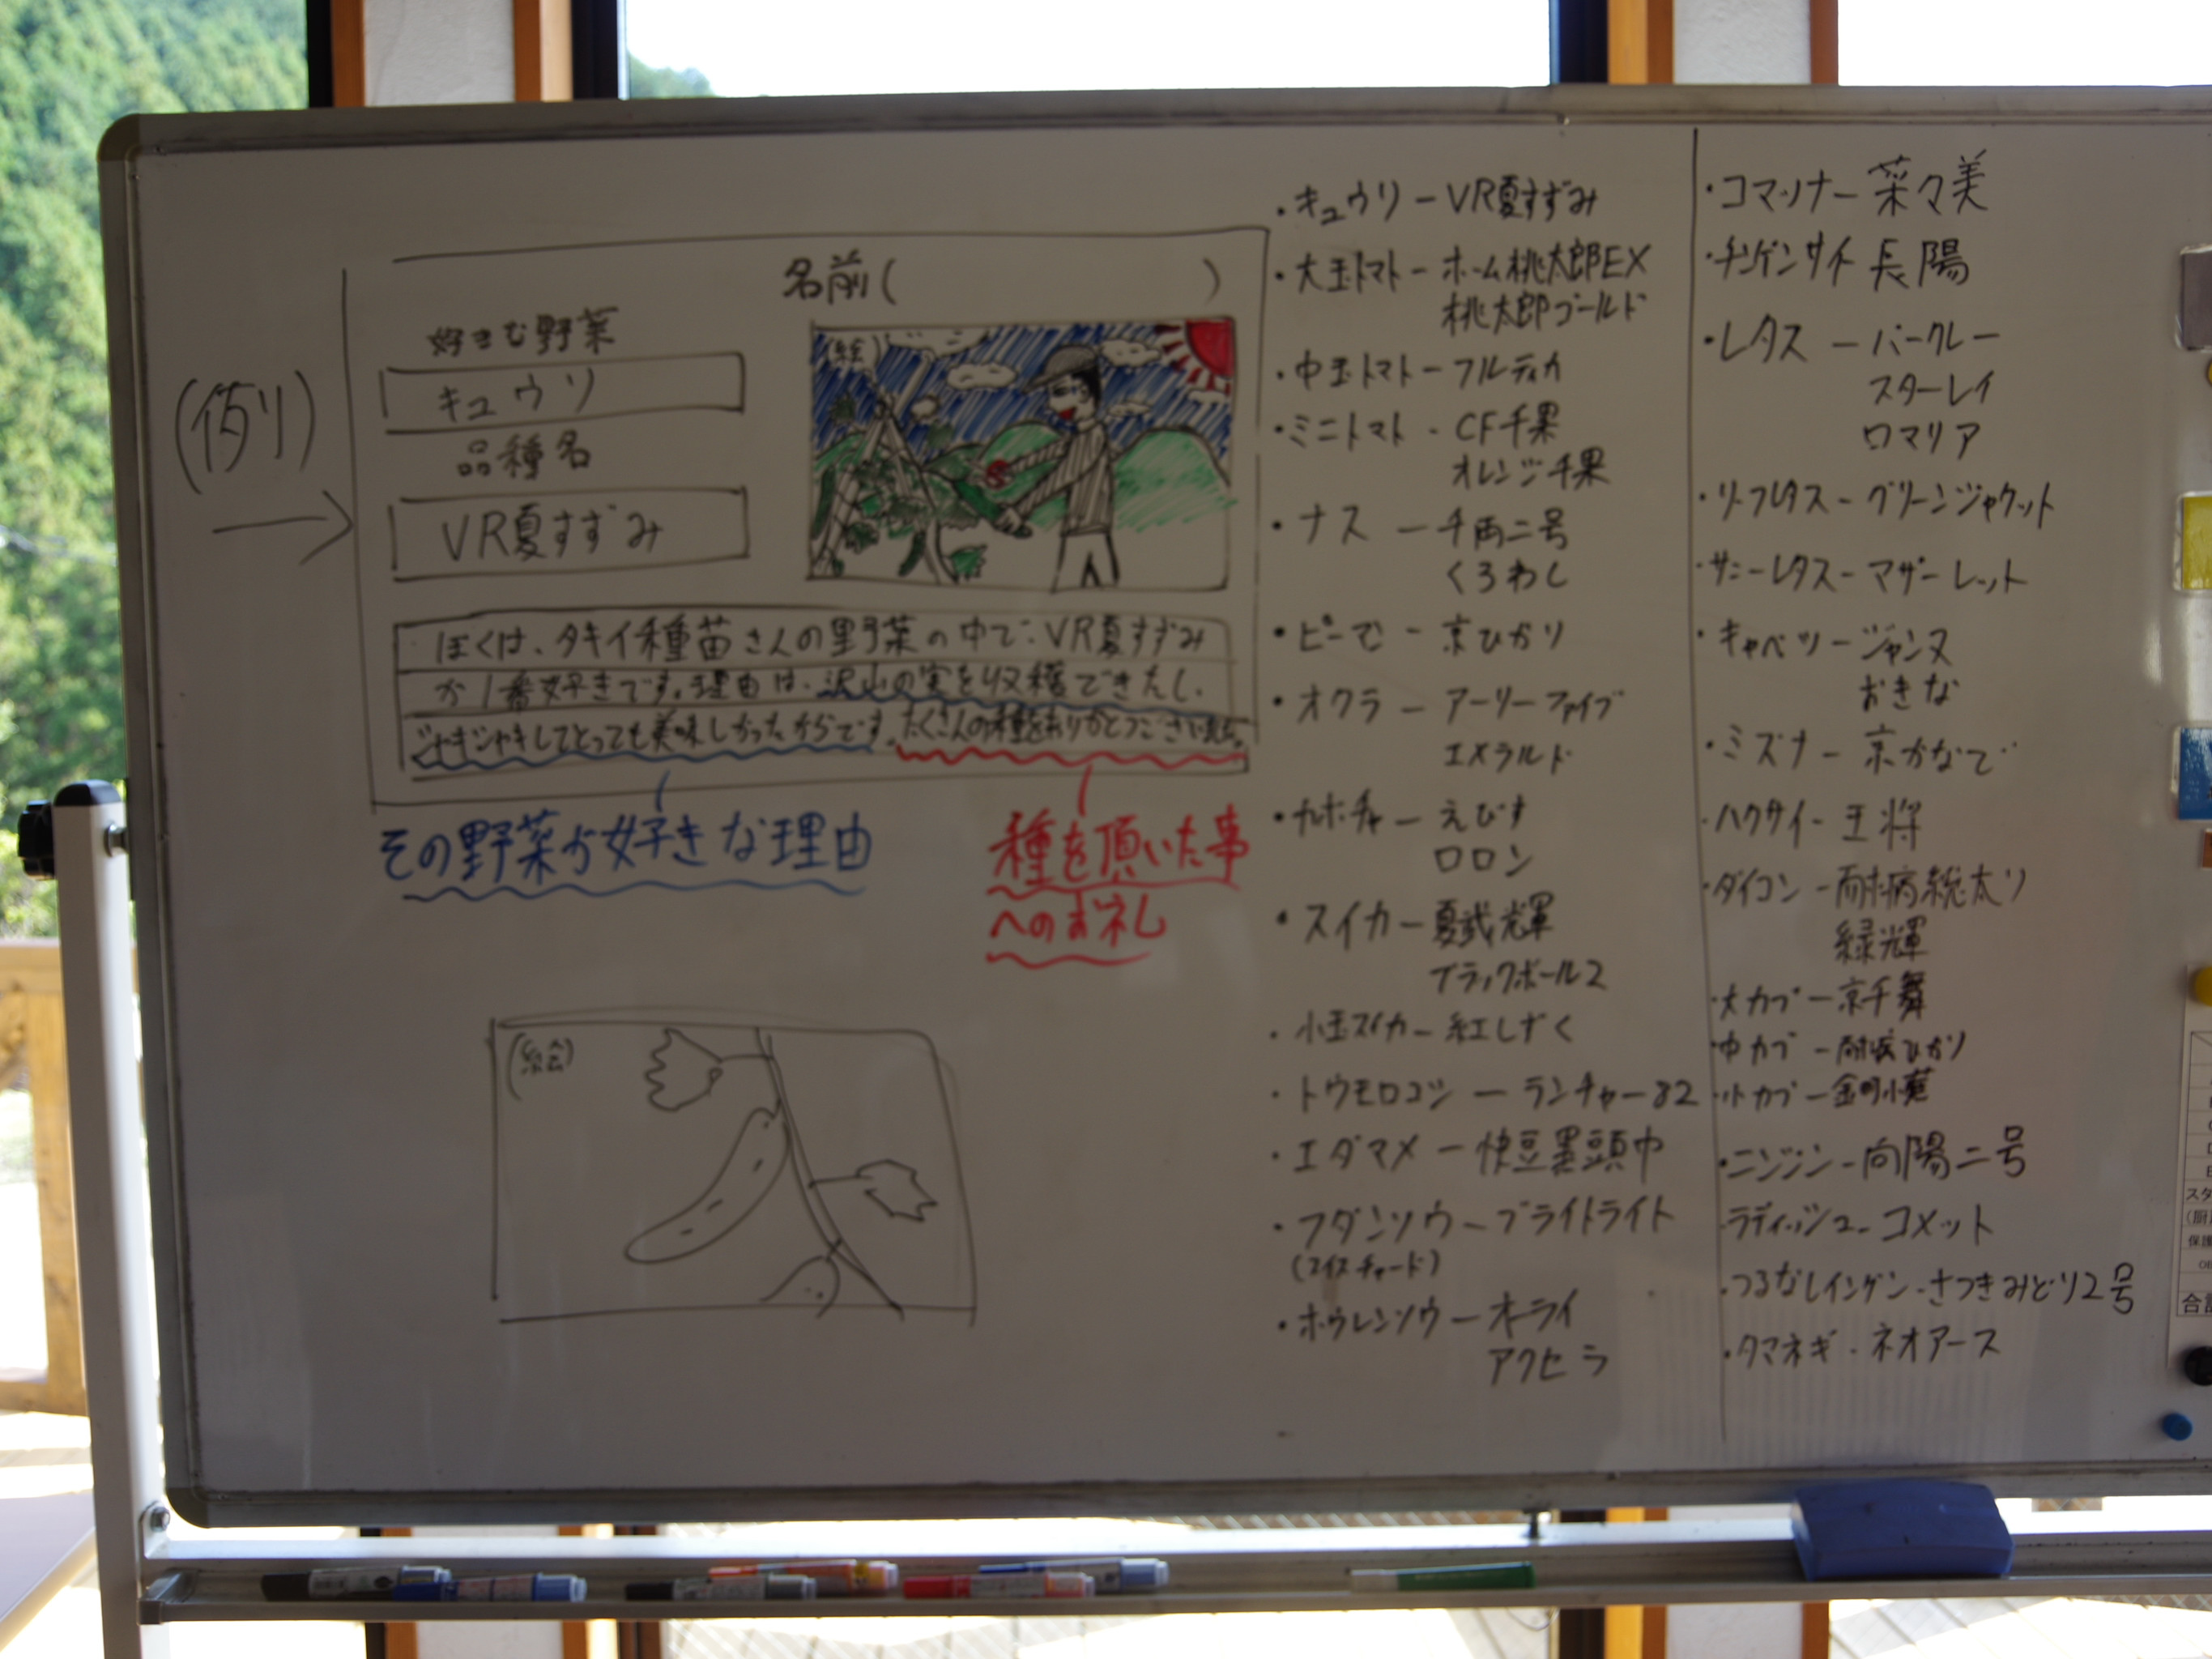 (例)
名前(　　　)
好きな野菜
キュウリ
品種名
VR夏すずみ
(絵)
ぼくは、タキイ種苗さんの野菜の中で、VR夏すずみ
が1番好きです。理由は、沢山の実を収穫できたし、
シャキシャキしてとっても美味しかったからです。たくさんの種をありがとうございました。
その野菜が好きな理由
種を頂いた事
へのお礼
(絵)
・キュウリ－VR夏すずみ
・大玉トマト－ホーム桃太郎EX
桃太郎ゴールド
・中玉トマト－フルティカ
・ミニトマト－CF千果
オレンジ千果
・ナス－千両二号
くろわし
・ピーマン－京ひかり
・オクラ－アーリーファイブ
エメラルド
・カボチャ－えびす
ロロン
・スイカ－夏武輝
ブラックボール2
・小玉スイカ－紅しずく
・トウモロコシ－ランチャー82
・エダマメ－快豆黒頭巾
・フダンソウ－ブライトライト
(スイスチャード)
・ホウレンソウ－オーライ
アクセラ
・コマツナ－菜々美
・チンゲンサイ 長陽
・レタス－バークレー
スターレイ
ロマリア
・リーフレタス－グリーンジャケット
・サニーレタス－マザーレット
・キャベツ－ジャンヌ
おきな
・ミズナ－京かなで
・ハクサイ－王将
・ダイコン－耐病総太り
緑輝
・大カブ－京千舞
・中カブ－耐病ひかり
・小カブ－金町小蕪
・ニンジン－向陽二号
・ラディッシュ－コメット
・つるなしインゲン－さつきみどり2号
・タマネギ－ネオアース